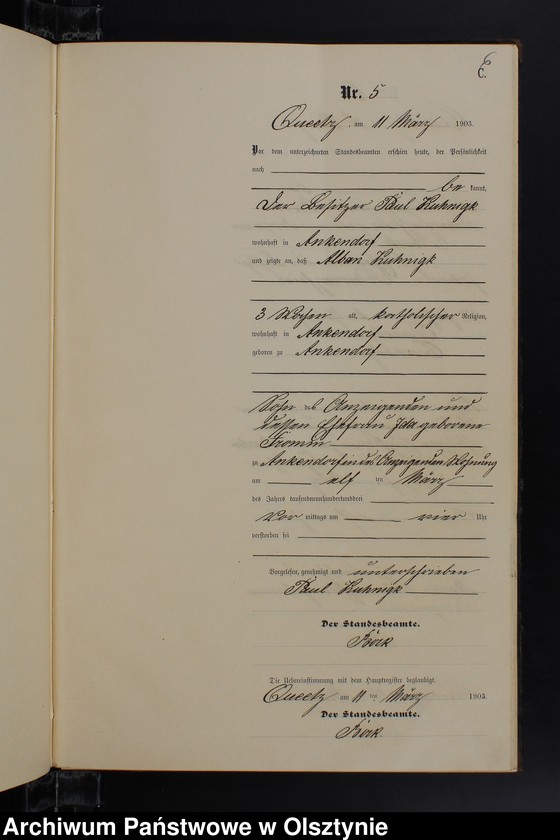 6
C.
Nr. 5
Queetz, am 11 März 1903.
Vor dem unterzeichneten Standesbeamten erschien heute, der Persönlichkeit
nach
be kannt,
der Besitzer Paul Kuhnigk
wohnhaft in Ankendorf
und zeigte an, daß Alban Kuhnigk
3 Wochen alt, katholischer Religion,
wohnhaft in Ankendorf
geboren zu Ankendorf
Sohn des Anzeigenden und
dessen Ehefrau Ida geborene
Fromm
zu Ankendorf in des Anzeigenden Wohnung
am elf ten März
des Jahres tausendneunhundertunddrei
Vor mittags um vier Uhr
verstorben sei
Vorgelesen, genehmigt und unterschrieben
Paul Kuhnigk
Der Standesbeamte.
Die Uebereinstimmung mit dem Hauptregister beglaubigt.
Queetz am 11 ten März 1903
Der Standesbeamte.
Archiwum Państwowe w Olsztynie